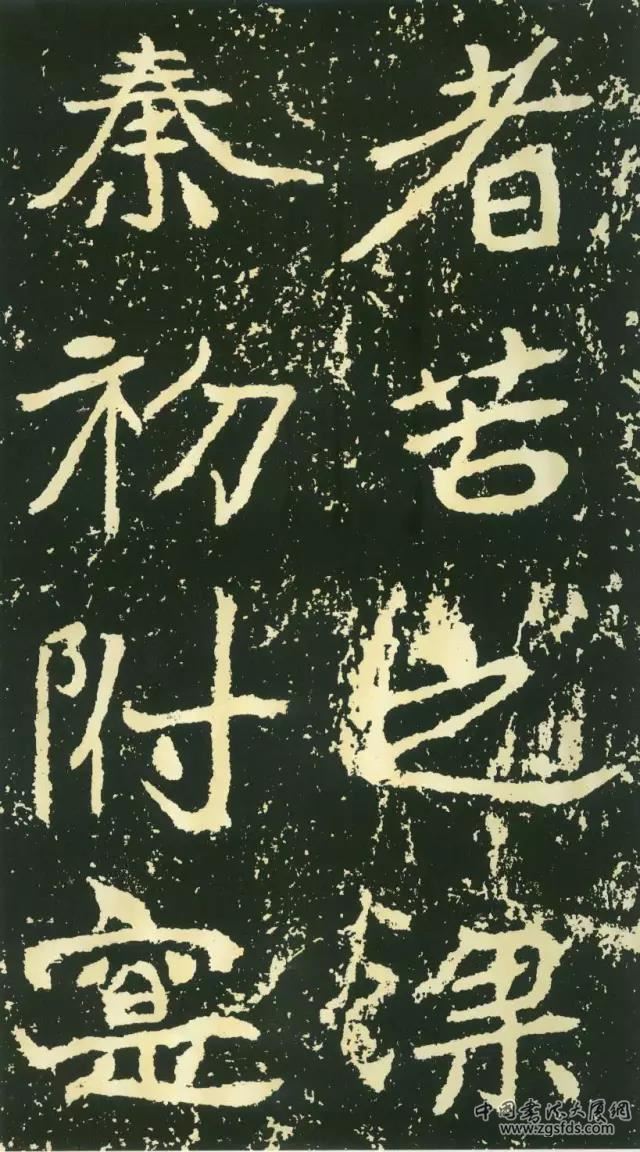 者苦之梁
秦初附寔
中国書法大展網
www.zgsfds.com